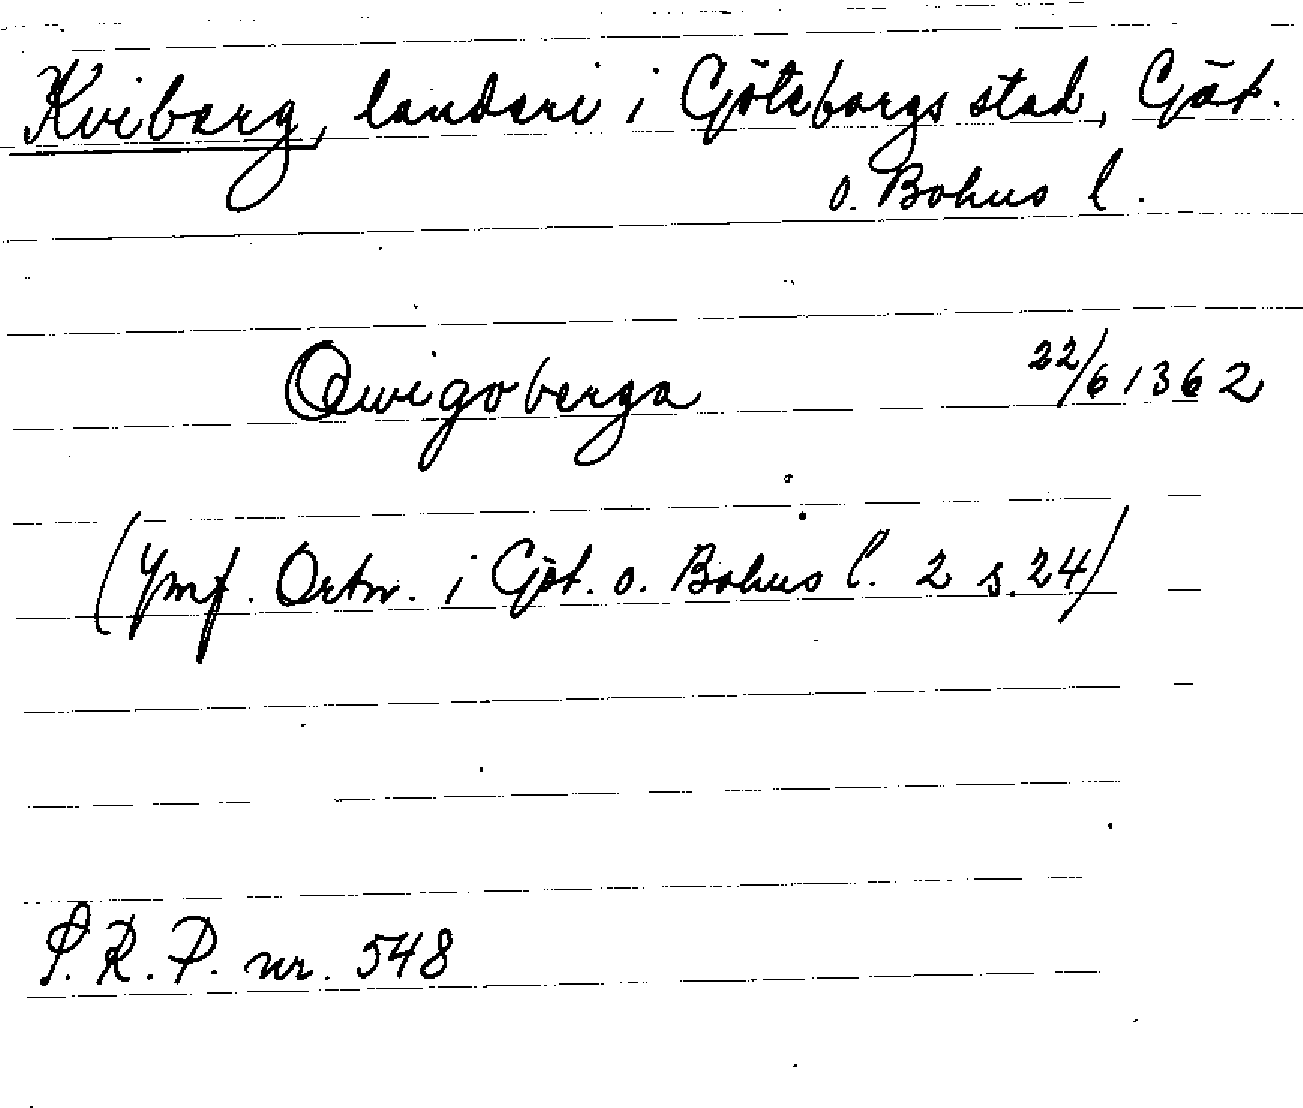 Kviberg, landeri i Göteborgs stad, Göt.
o. Bohus l.
Qwigoberga 22/6 1362
(Jmf. Ortn. i Göt. o. Bohus l. 2 s. 24)
S. R. P. nr. 548